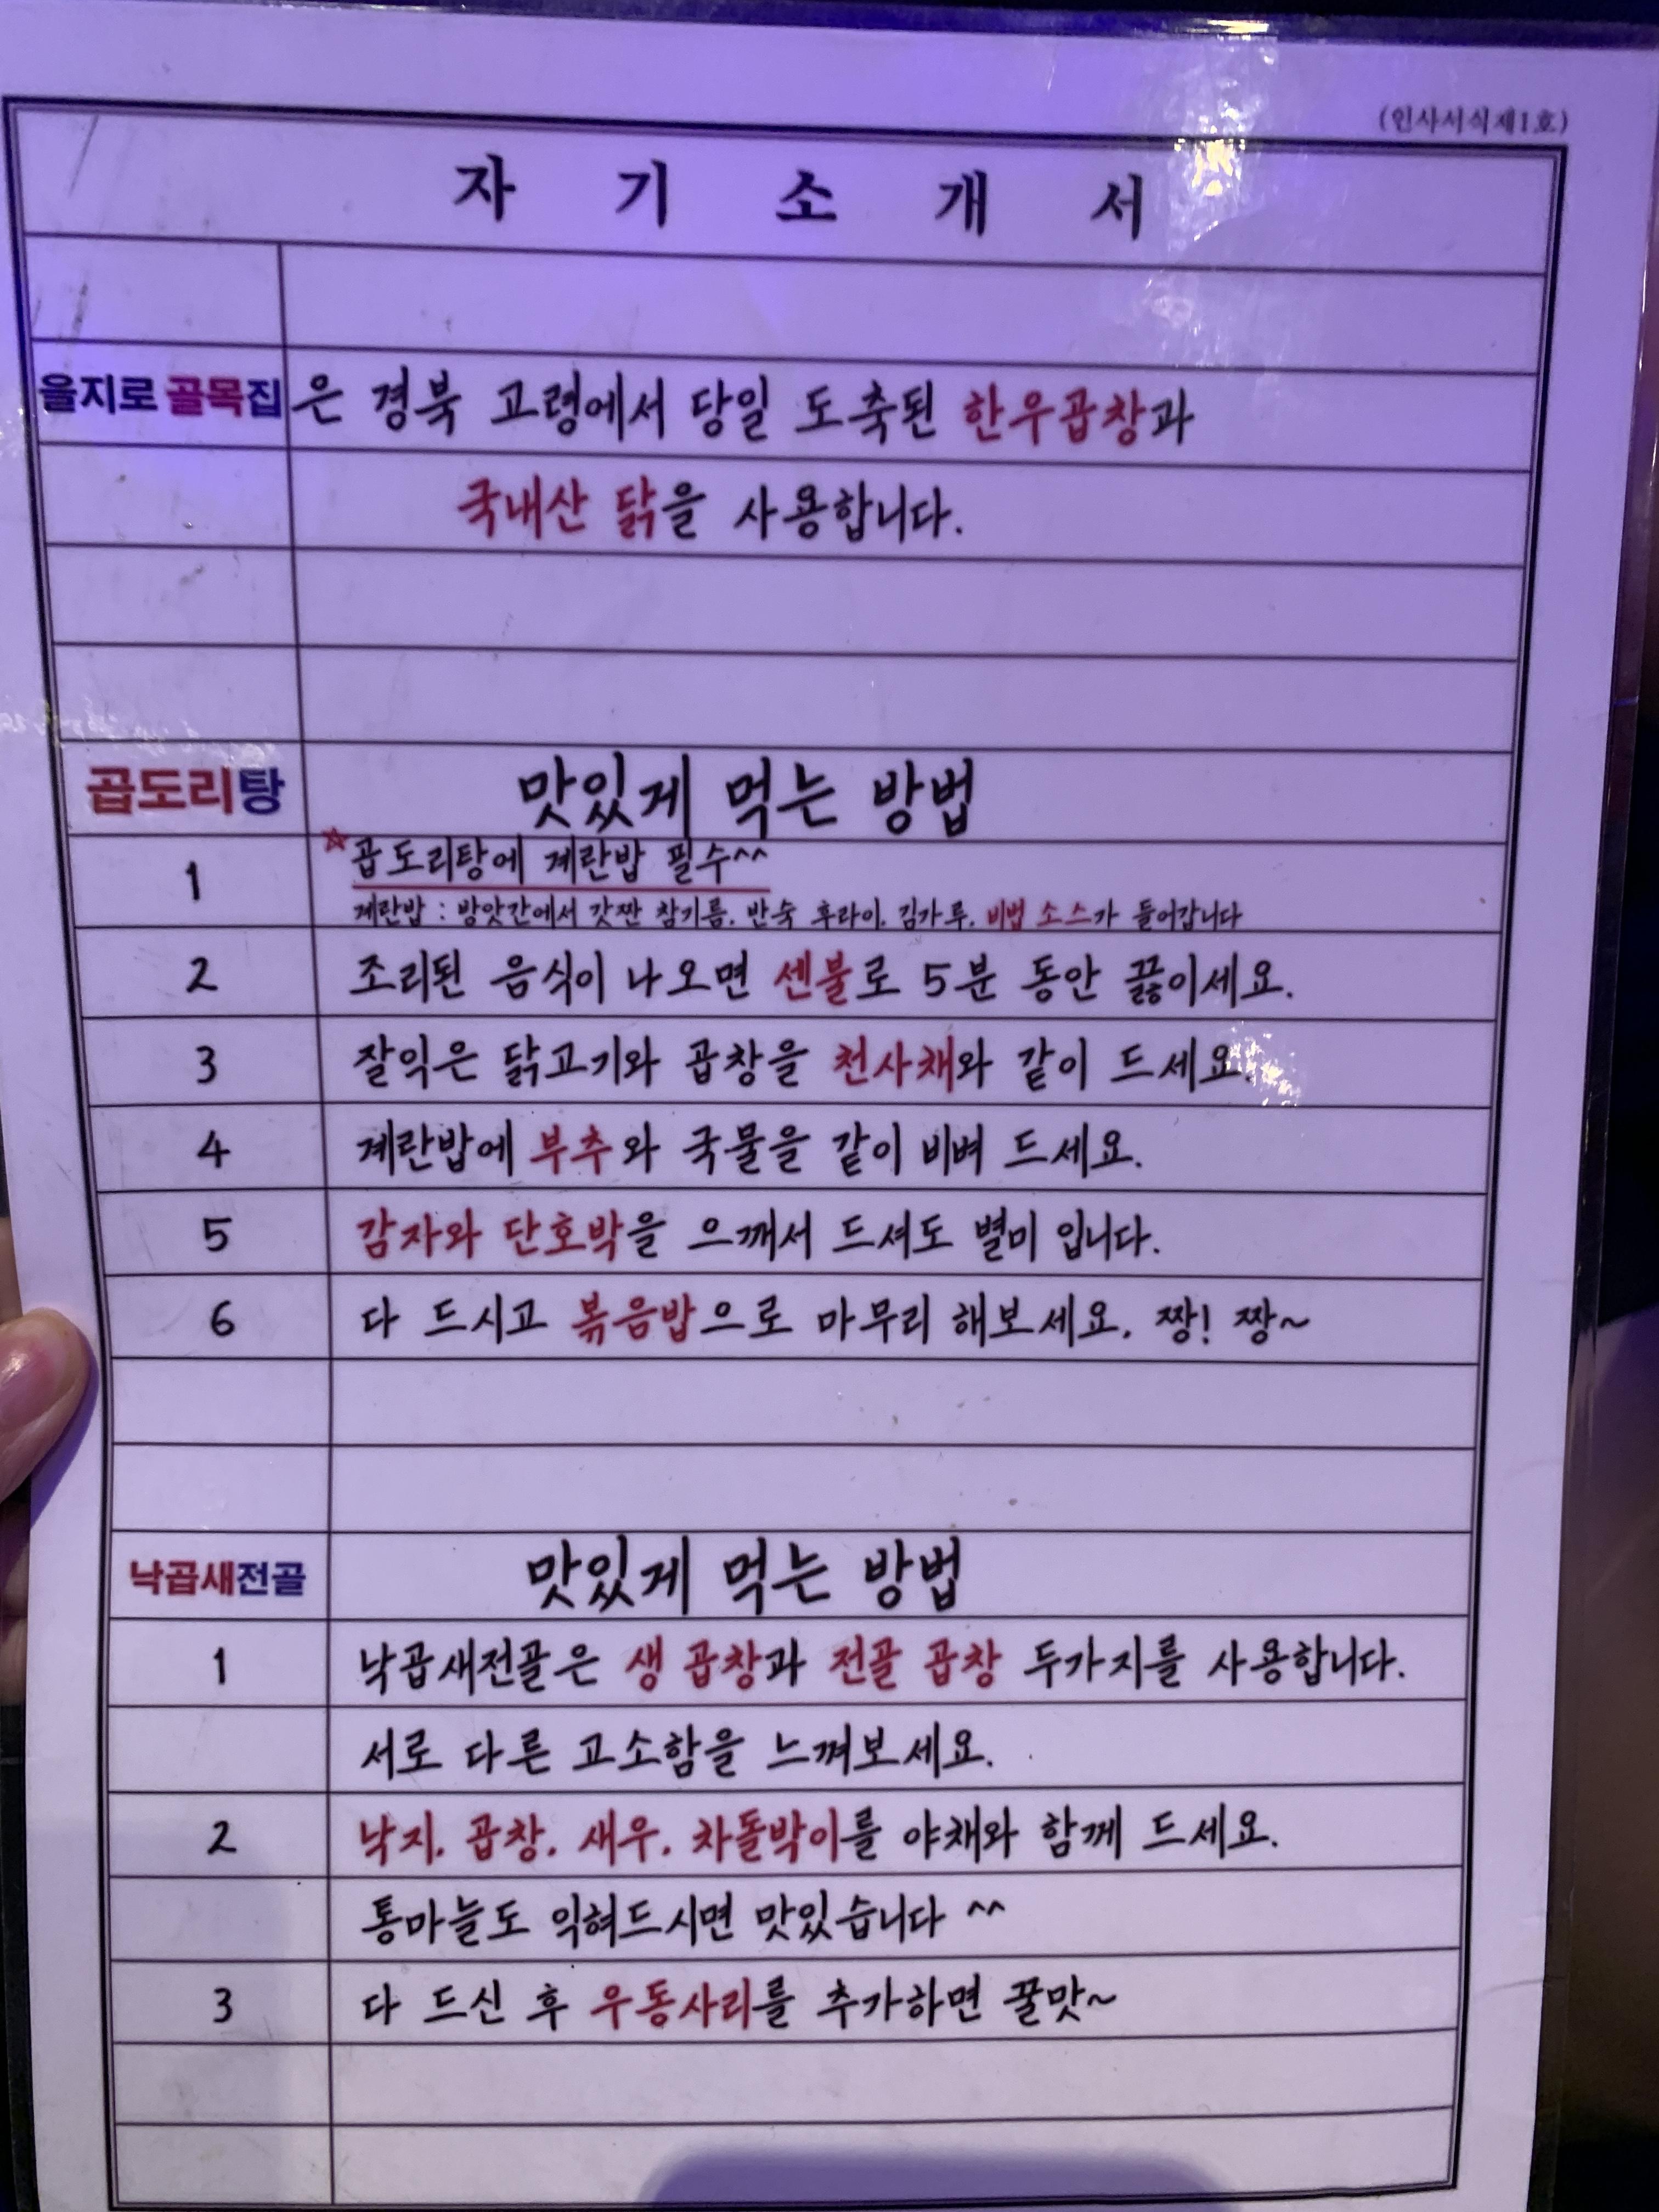 (인사서식제1호)
자 기 소 개 서
을지로 골목집은 경북 고령에서 당일 도축된 한우곱창과
국내산 닭을 사용합니다.
곱도리탕 맛있게 먹는 방법
1 ☆곱도리탕에 계란밥 필수^^
계란밥 : 방앗간에서 갓짠 참기름, 반숙 후라이, 김가루, 비법 소스가 들어갑니다
2 조리된 음식이 나오면 센불로 5분 동안 끓이세요.
3 잘익은 닭고기와 곱창을 천사채와 같이 드세요.
4 계란밥에 부추와 국물을 같이 비벼 드세요.
5 감자와 단호박을 으깨서 드셔도 별미 입니다.
6 다 드시고 볶음밥으로 마무리 해보세요. 짱! 짱~
낙곱새전골 맛있게 먹는 방법
1 낙곱새전골은 생 곱창과 전골 곱창 두가지를 사용합니다.
서로 다른 고소함을 느껴보세요.
2 낙지, 곱창, 새우, 차돌박이를 야채와 함께 드세요.
통마늘도 익혀드시면 맛있습니다 ^^
3 다 드신 후 우동사리를 추가하면 꿀맛~